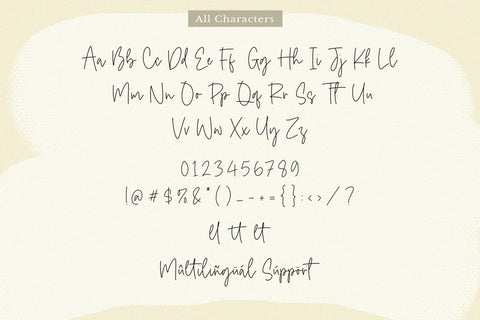 All Characters
Aa Bb Cc Dd Ee Ff Gg Hh Ii Jj Kk Ll
Mm Nn Oo Pp Qq Rr Ss Tt Uu
Vv Ww Xx Yy Zz
0123456789
!@#$%&*()_-+={}:<>/?
el tt et
Múltilíñgúál Súppört